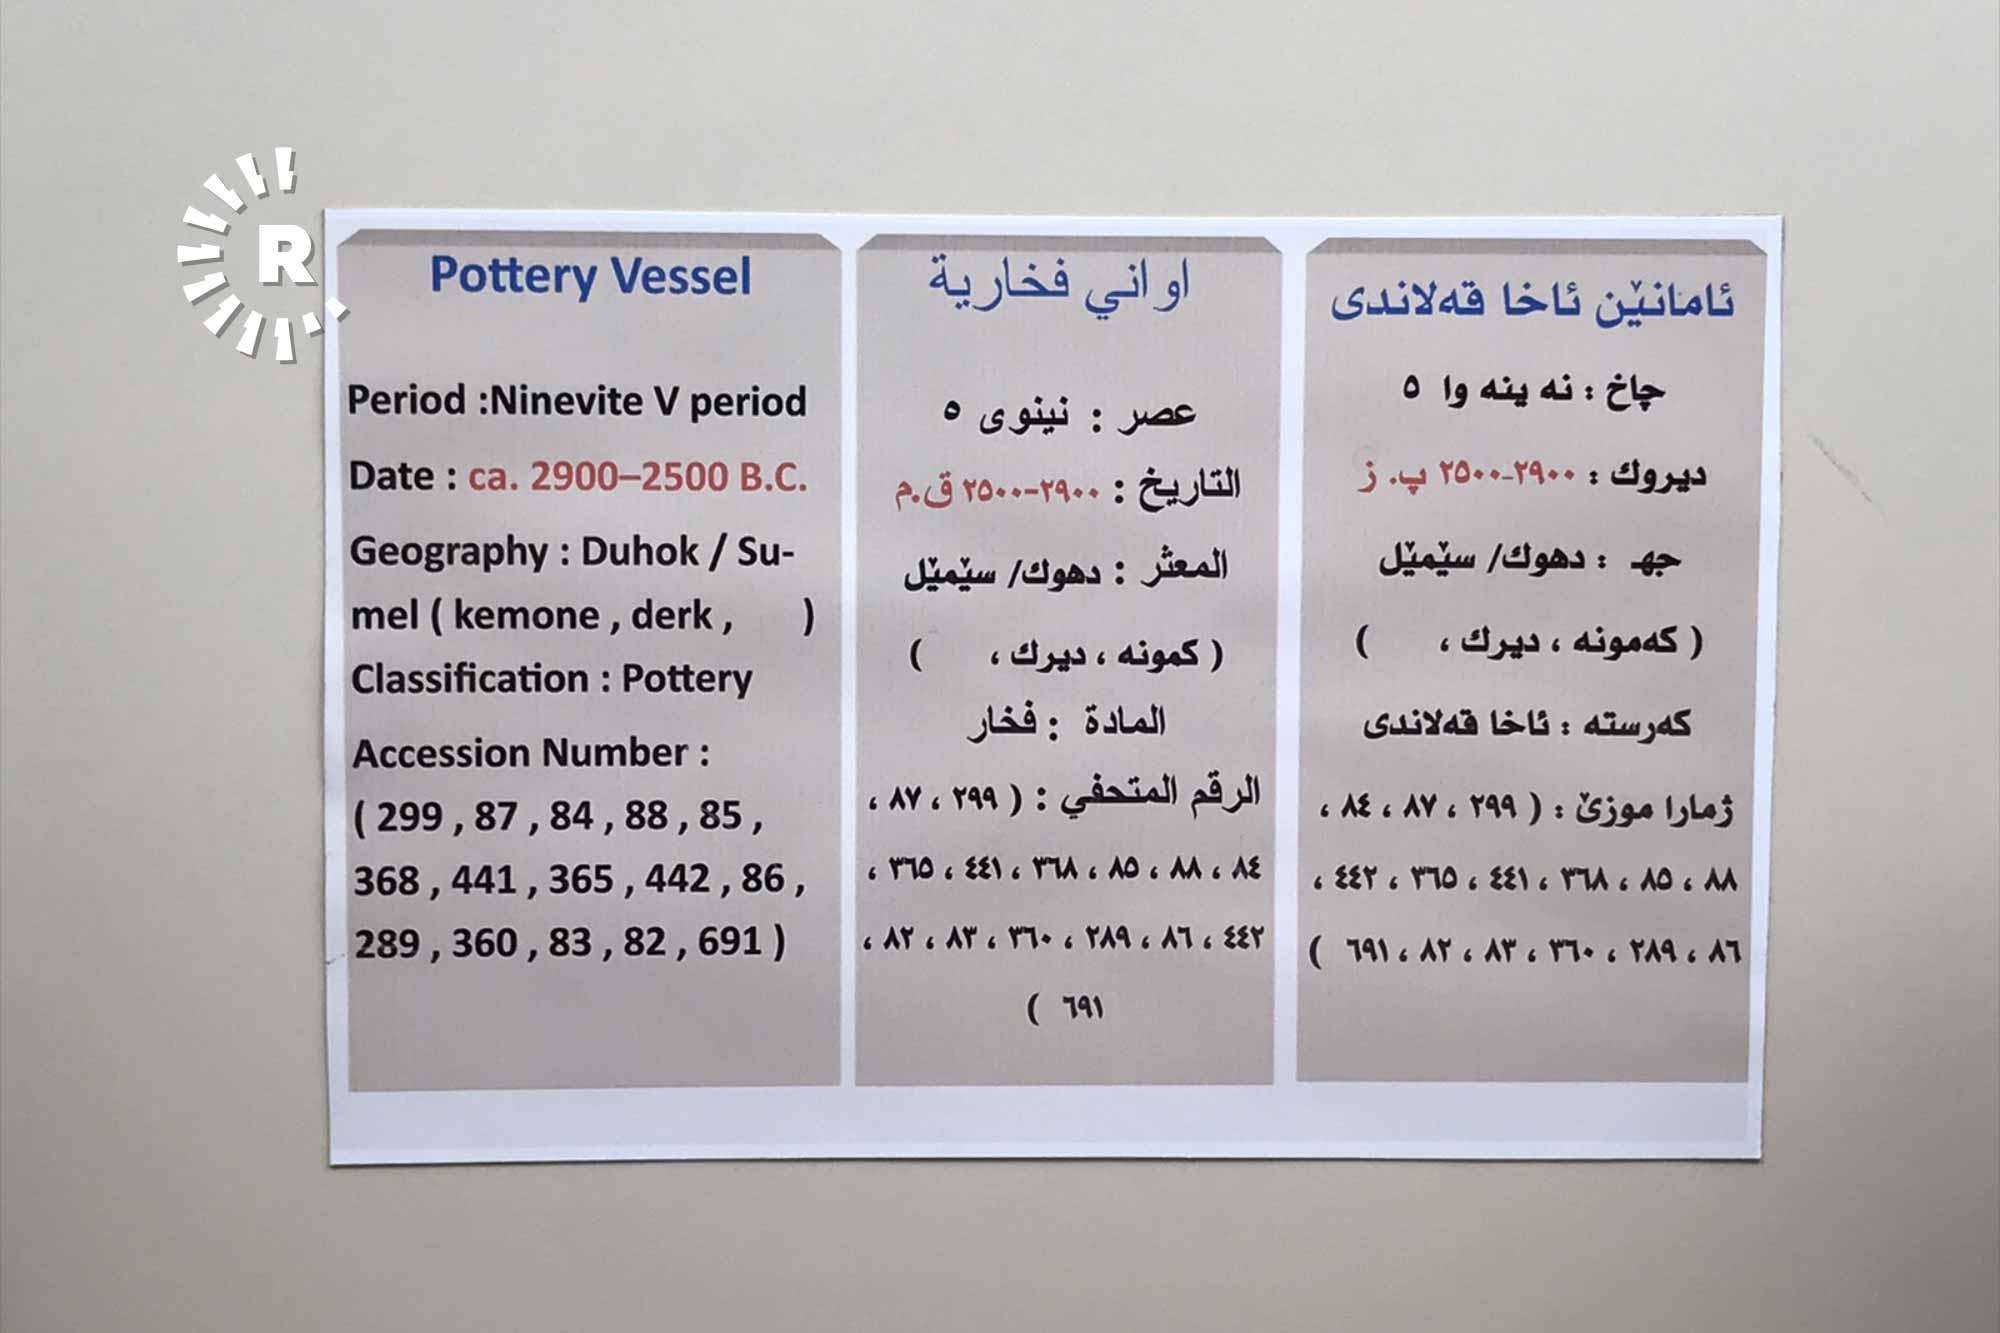 R
Pottery Vessel
Period :Ninevite V period
Date : ca. 2900–2500 B.C.
Geography : Duhok / Su-
mel ( kemone , derk ,      )
Classification : Pottery
Accession Number :
( 299 , 87 , 84 , 88 , 85 ,
368 , 441 , 365 , 442 , 86 ,
289 , 360 , 83 , 82 , 691 )
اواني فخارية
عصر : نينوى ٥
التاريخ : ٢٩٠٠-٢٥٠٠ ق.م
المعثر : دهوك/ سێمێل
( كمونه ، ديرك ،      )
المادة : فخار
الرقم المتحفي : ( ٢٩٩ ، ٨٧ ،
٨٤ ، ٨٨ ، ٨٥ ، ٣٦٨ ، ٤٤١ ، ٣٦٥ ،
٤٤٢ ، ٨٦ ، ٢٨٩ ، ٣٦٠ ، ٨٣ ، ٨٢ ،
٦٩١ )
ئامانێن ئاخا قەلاندى
چاخ : نه ينه وا ٥
ديروك : ٢٩٠٠-٢٥٠٠ پ. ز
جهـ : دهوك/ سێمێل
( كەمونه ، ديرك ،      )
كەرسته : ئاخا قەلاندى
ژمارا موزێ : ( ٢٩٩ ، ٨٧ ، ٨٤ ،
٨٨ ، ٨٥ ، ٣٦٨ ، ٤٤١ ، ٣٦٥ ، ٤٤٢ ،
٨٦ ، ٢٨٩ ، ٣٦٠ ، ٨٣ ، ٨٢ ، ٦٩١ )